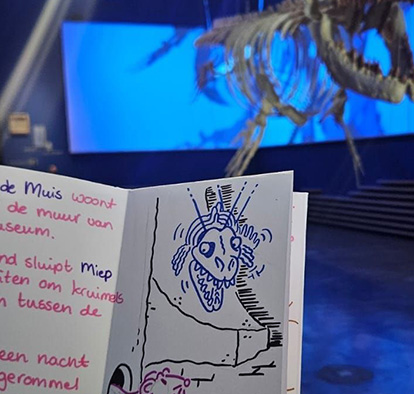 de Muis woont
de muur van
useum.
nd sluipt Miep
iten om kruimels
n tussen de
een nacht
gerommel